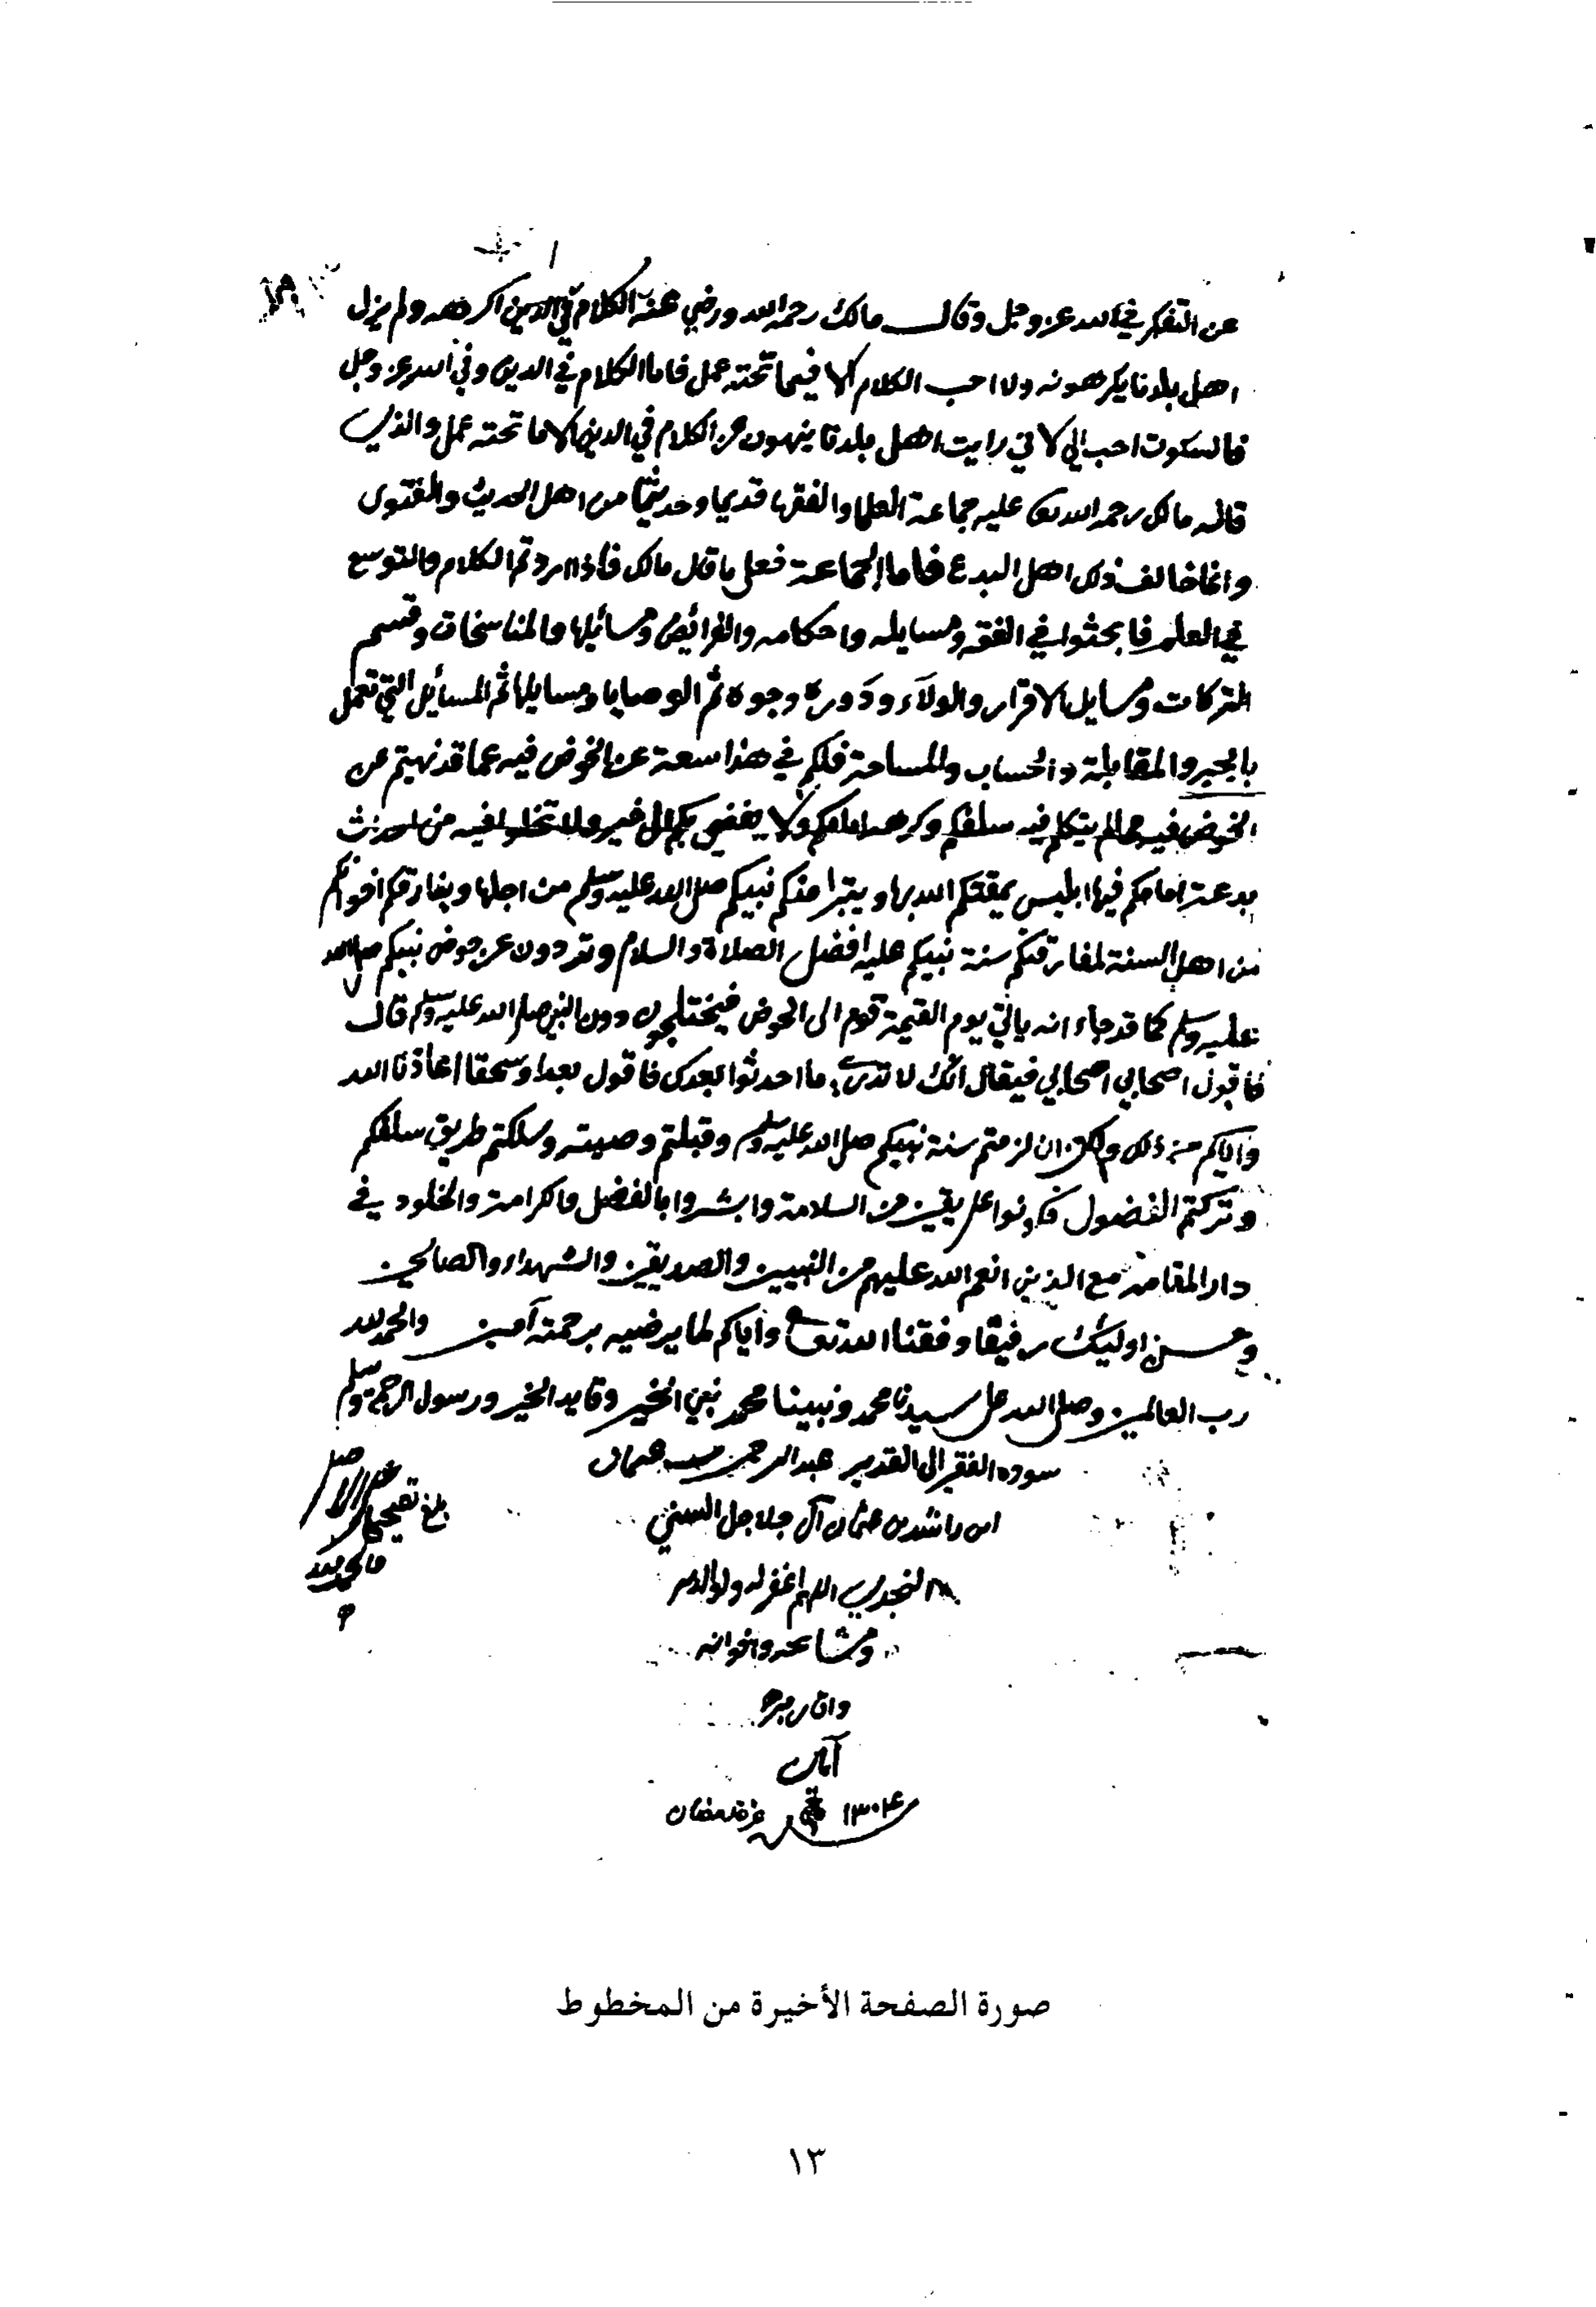 عن التفكر في الله عز وجل وقال مالك رحمه الله ورضي عنه الكلام في الدين اكرهه ولم يزل
اهل بلدنا يكرهونه ولا احب الكلام الا فيما تحته عمل فاما الكلام في الدين وفي الله عز وجل
فالسكوت احب الي لاني رايت اهل بلدنا ينهون عن الكلام في الدين الا ما تحته عمل والذي
قاله مالك رحمه الله عليه جماعة العلما والفقها قديما وحديثا من اهل الحديث والفتوى
وانما خالف ذلك اهل البدع فاما الجماعة فعلى ما قال مالك فاذا اردتم الكلام والتوسع
في العلم فابحثوا في الفقه ومسايله واحكامه والفرائض ومسائلها والمناسخات وقسم
التركات ومسايل الاقرار والولاء ودوره وجوه ثم الوصايا ومسايلها ثم المسائل التي تعمل
بالجبر والمقابلة والحساب والمساحة فلكم في هذا سعة عن الخوض فيه عما قد نهيتم عن
الخوض فيه مما لم يتكلم فيه سلفكم وكرهه امامكم ولا يفضي بكم الى خير ولا تخلوا فيه من احداث
بدعة امامكم فيها ابليس يمقتكم الله بها ويتبرا منكم نبيكم صلى الله عليه وسلم من اجلها ويفارقكم اخوانكم
من اهل السنة لمفارقتكم سنة نبيكم عليه افضل الصلاة والسلام وتردون عن حوض نبيكم صلى الله
عليه وسلم كما قد جاء انه ياتي يوم القيمة قوم الى الحوض فيختلجون دون النبي صلى الله عليه وسلم قال
فاقول اصحابي اصحابي فيقال انك لا تدري ما احدثوا بعدك فاقول بعدا وسحقا اعاذنا الله
واياكم من ذلك ولكن ان لزمتم سنة نبيكم صلى الله عليه وسلم وقبلتم وصيته وسلكتم طريق سلفكم
وتركتم الفضول فكونوا على يقين من السلامة وابشروا بالفضل والكرامة والخلود في
دار المقامة مع الذين انعم الله عليهم من النبيين والصديقين والشهداء والصالحين
وحسن اوليك رفيقا وفقنا الله تعالى واياكم لما يرضيه برحمته آمين والحمد لله
رب العالمين وصلى الله على سيدنا محمد ونبينا محمد نبي الخير وقايد الخير ورسول الرحمة وسلم
سوده الفقير الى القدير عبد الرحمن بن عثمان
ابن راشد بن عثمان آل جلاجل السني
النجدي اللهم اغفر له ولوالديه
ومشايخه واخوانه
واقاربه
آمين
١٣٠٤ غرة رمضان
بلغ تصحيحا على الاصل
والحمد لله
صورة الصفحة الأخيرة من المخطوط
١٣